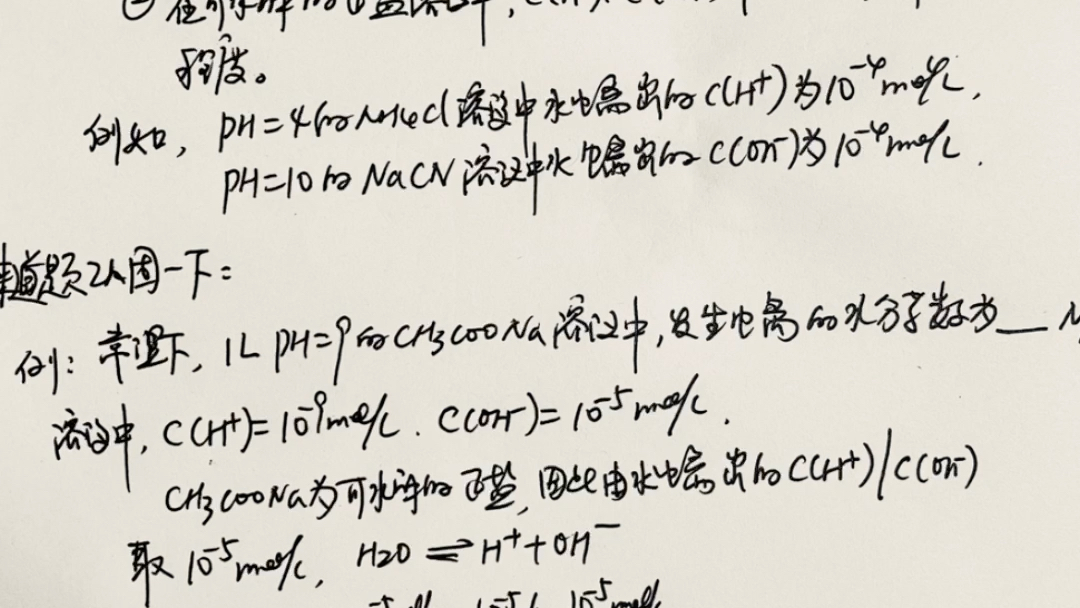 ② 在可水解的正盐溶液中，
程度。
例如，PH=4的NH4Cl溶液中水电离出的C(H⁺)为10⁻⁴mol/L，
PH=10的NaCN溶液中水电离出的C(OH⁻)为10⁻⁴mol/L．
道题巩固一下：
例：常温下，1L PH=9的CH3COONa溶液中，发生电离的水分子数为__ N
溶液中，C(H⁺)=10⁻⁹mol/L．C(OH⁻)=10⁻⁵mol/L．
CH3COONa为可水解的正盐，因此由水电离出的C(H⁺)/C(OH⁻)
取10⁻⁵mol/L，H2O ⇌ H⁺+OH⁻
10⁻⁵mol/L